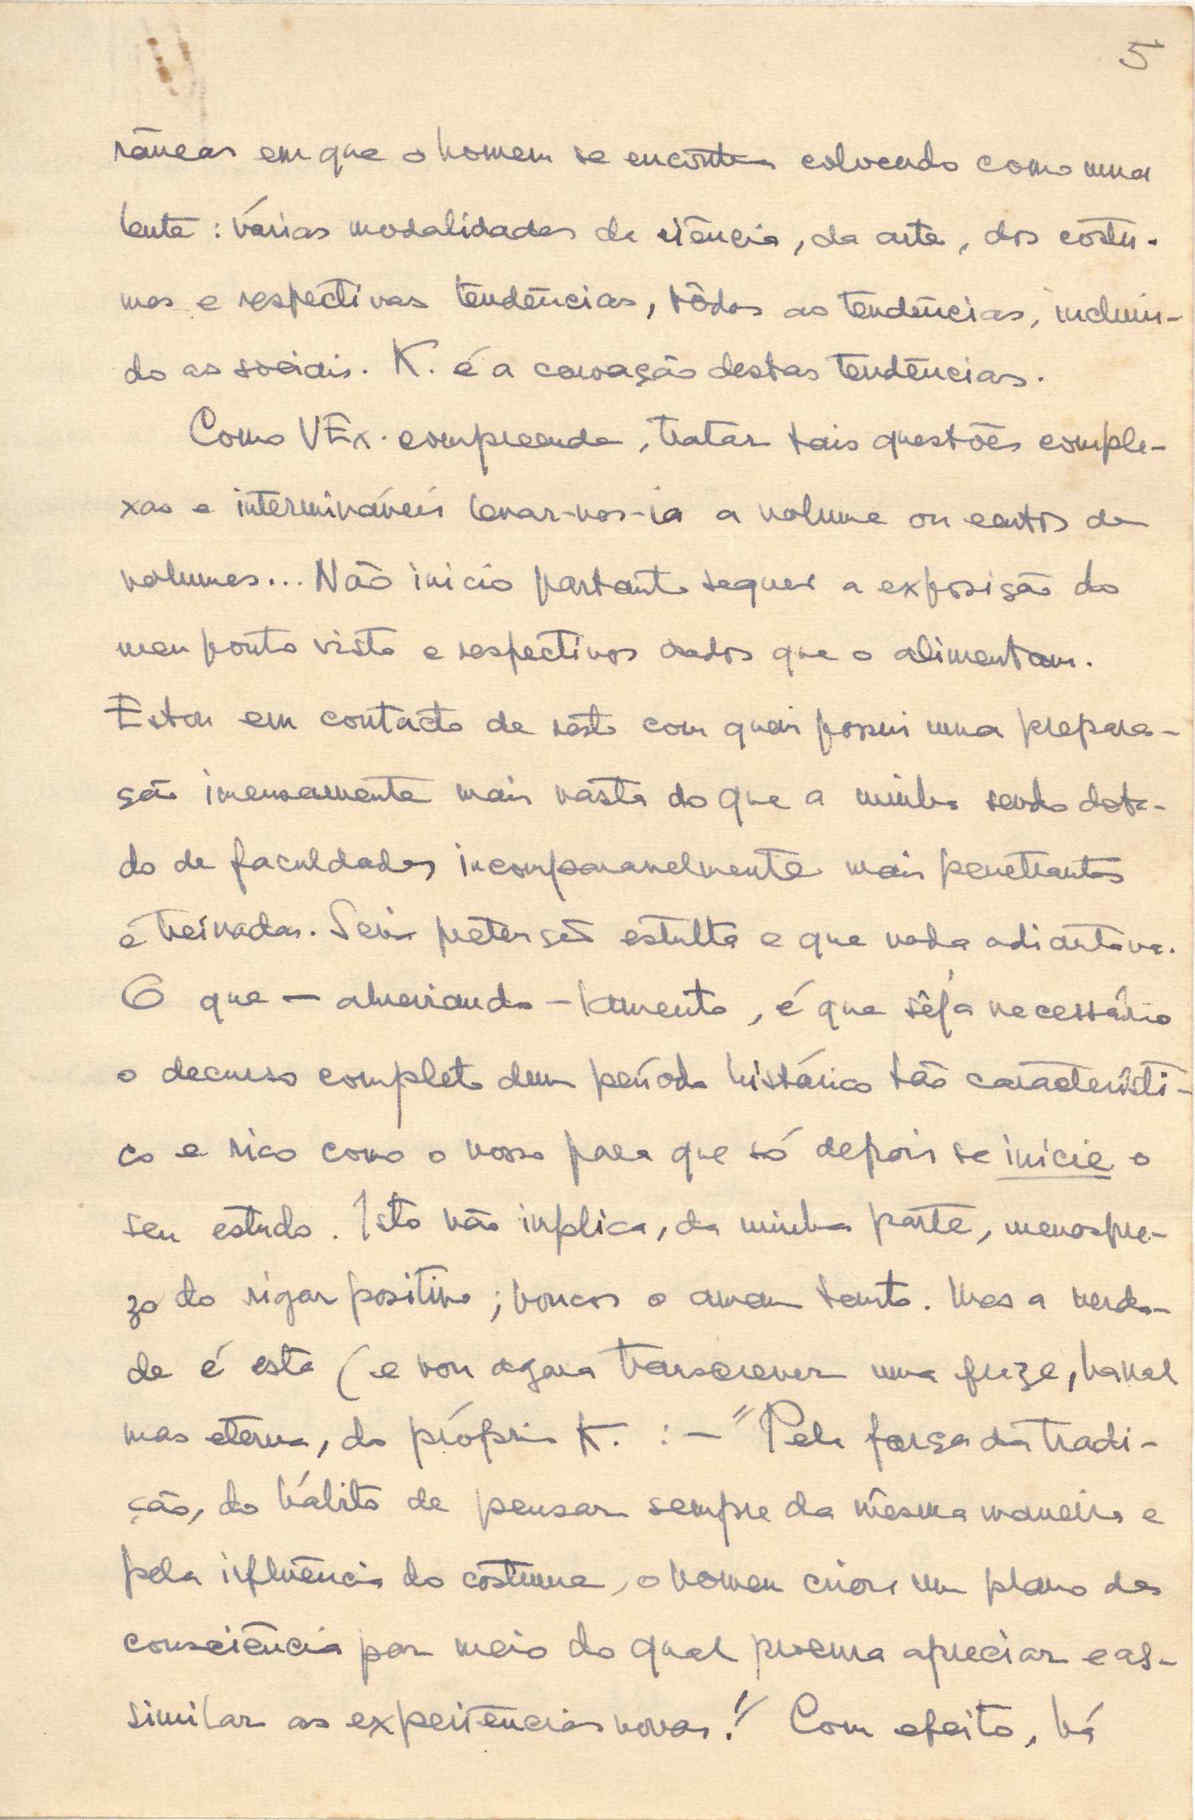 5
râneas em que o homem se encontra colocado como uma
lente : várias modalidades da ciência, da arte, dos costu-
mes e respectivas tendências, tôdas as tendências, incluin-
do as sociais. K. é a coroação destas tendências.
Como VEx. compreende, tratar tais questões comple-
xas e intermináveis levar-nos-ia a volume ou centos de
volumes... Não inicio portanto sequer a exposição do
meu ponto visto e respectivos dados que o alimentam.
Estou em contacto de resto com quem possui uma prepara-
ção imensamente mais vasta do que a minha sendo dota-
do de faculdades incomparavelmente mais penetrantes
e treinadas. Seria pretensão estulta e que nada adiantava.
O que — — lamento, é que sêja necessário
o decurso completo dum período histórico tão característi-
co e rico como o nosso para que só depois se inicie o
seu estudo. Isto não implica, da minha parte, menospre-
zo do rigor positivo ; poucos o amam tanto. Mas a verda-
de é esta (e vou agora transcrever uma frase, banal
mas eterna, do próprio K. : — "Pela força da tradi-
ção, do hábito de pensar sempre da mesma maneira e
pela influência do costume, o homem criou um plano de
consciência por meio do qual procura apreciar e as-
similar as experiências novas!" Com efeito, há